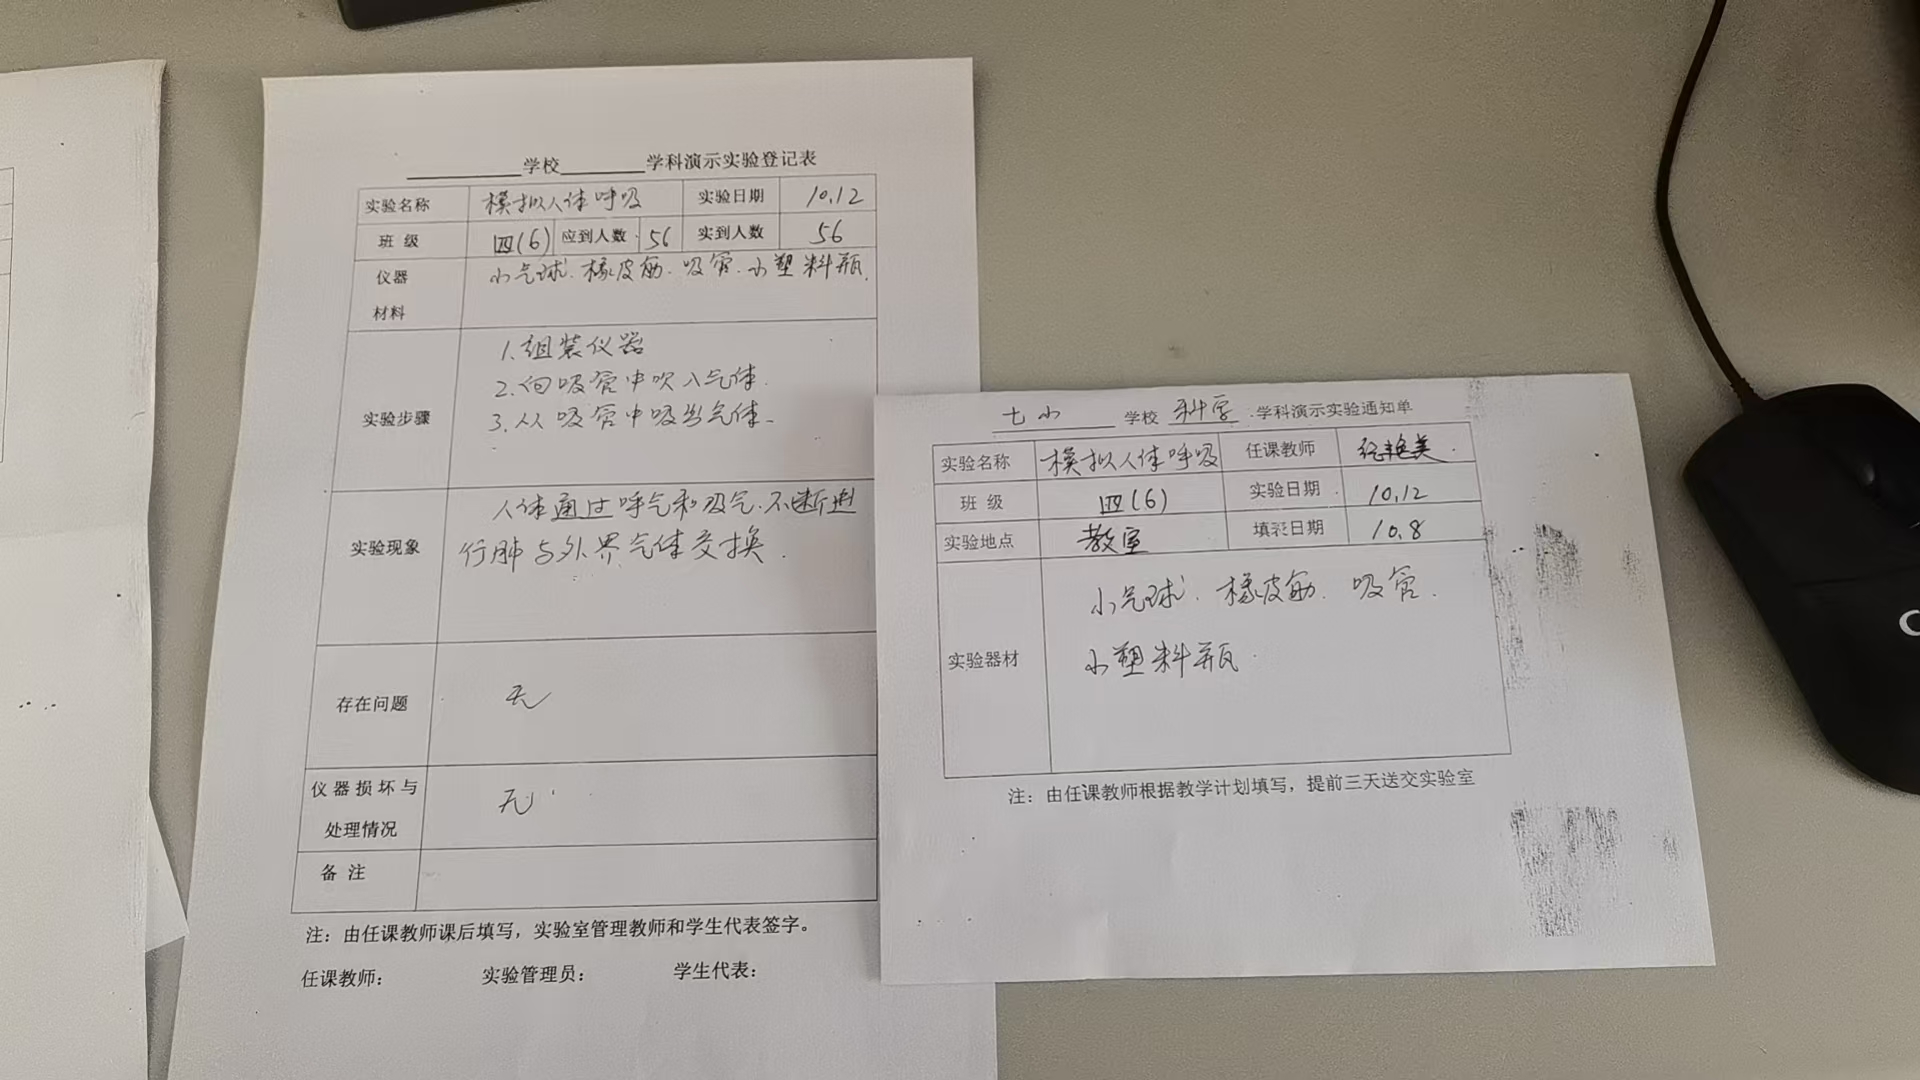 学校 学科演示实验登记表
实验名称 模拟人体呼吸 实验日期 10.12
班 级 四(6) 应到人数 56 实到人数 56
仪器 材料 小气球. 橡皮筋. 吸管. 小塑料瓶.
实验步骤 1.组装仪器
2.向吸管中吹入气体.
3.从吸管中吸出气体.
实验现象 人体通过呼气和吸气.不断进
行肺与外界气体交换.
存在问题 无
仪器损坏与 处理情况 无
备 注
注：由任课教师课后填写，实验室管理教师和学生代表签字。
任课教师： 实验管理员： 学生代表：
七小 学校 科学 学科演示实验通知单
实验名称 模拟人体呼吸 任课教师 艳美
班 级 四(6) 实验日期 10.12
实验地点 教室 填表日期 10.8
实验器材 小气球. 橡皮筋. 吸管.
小塑料瓶
注：由任课教师根据教学计划填写，提前三天送交实验室